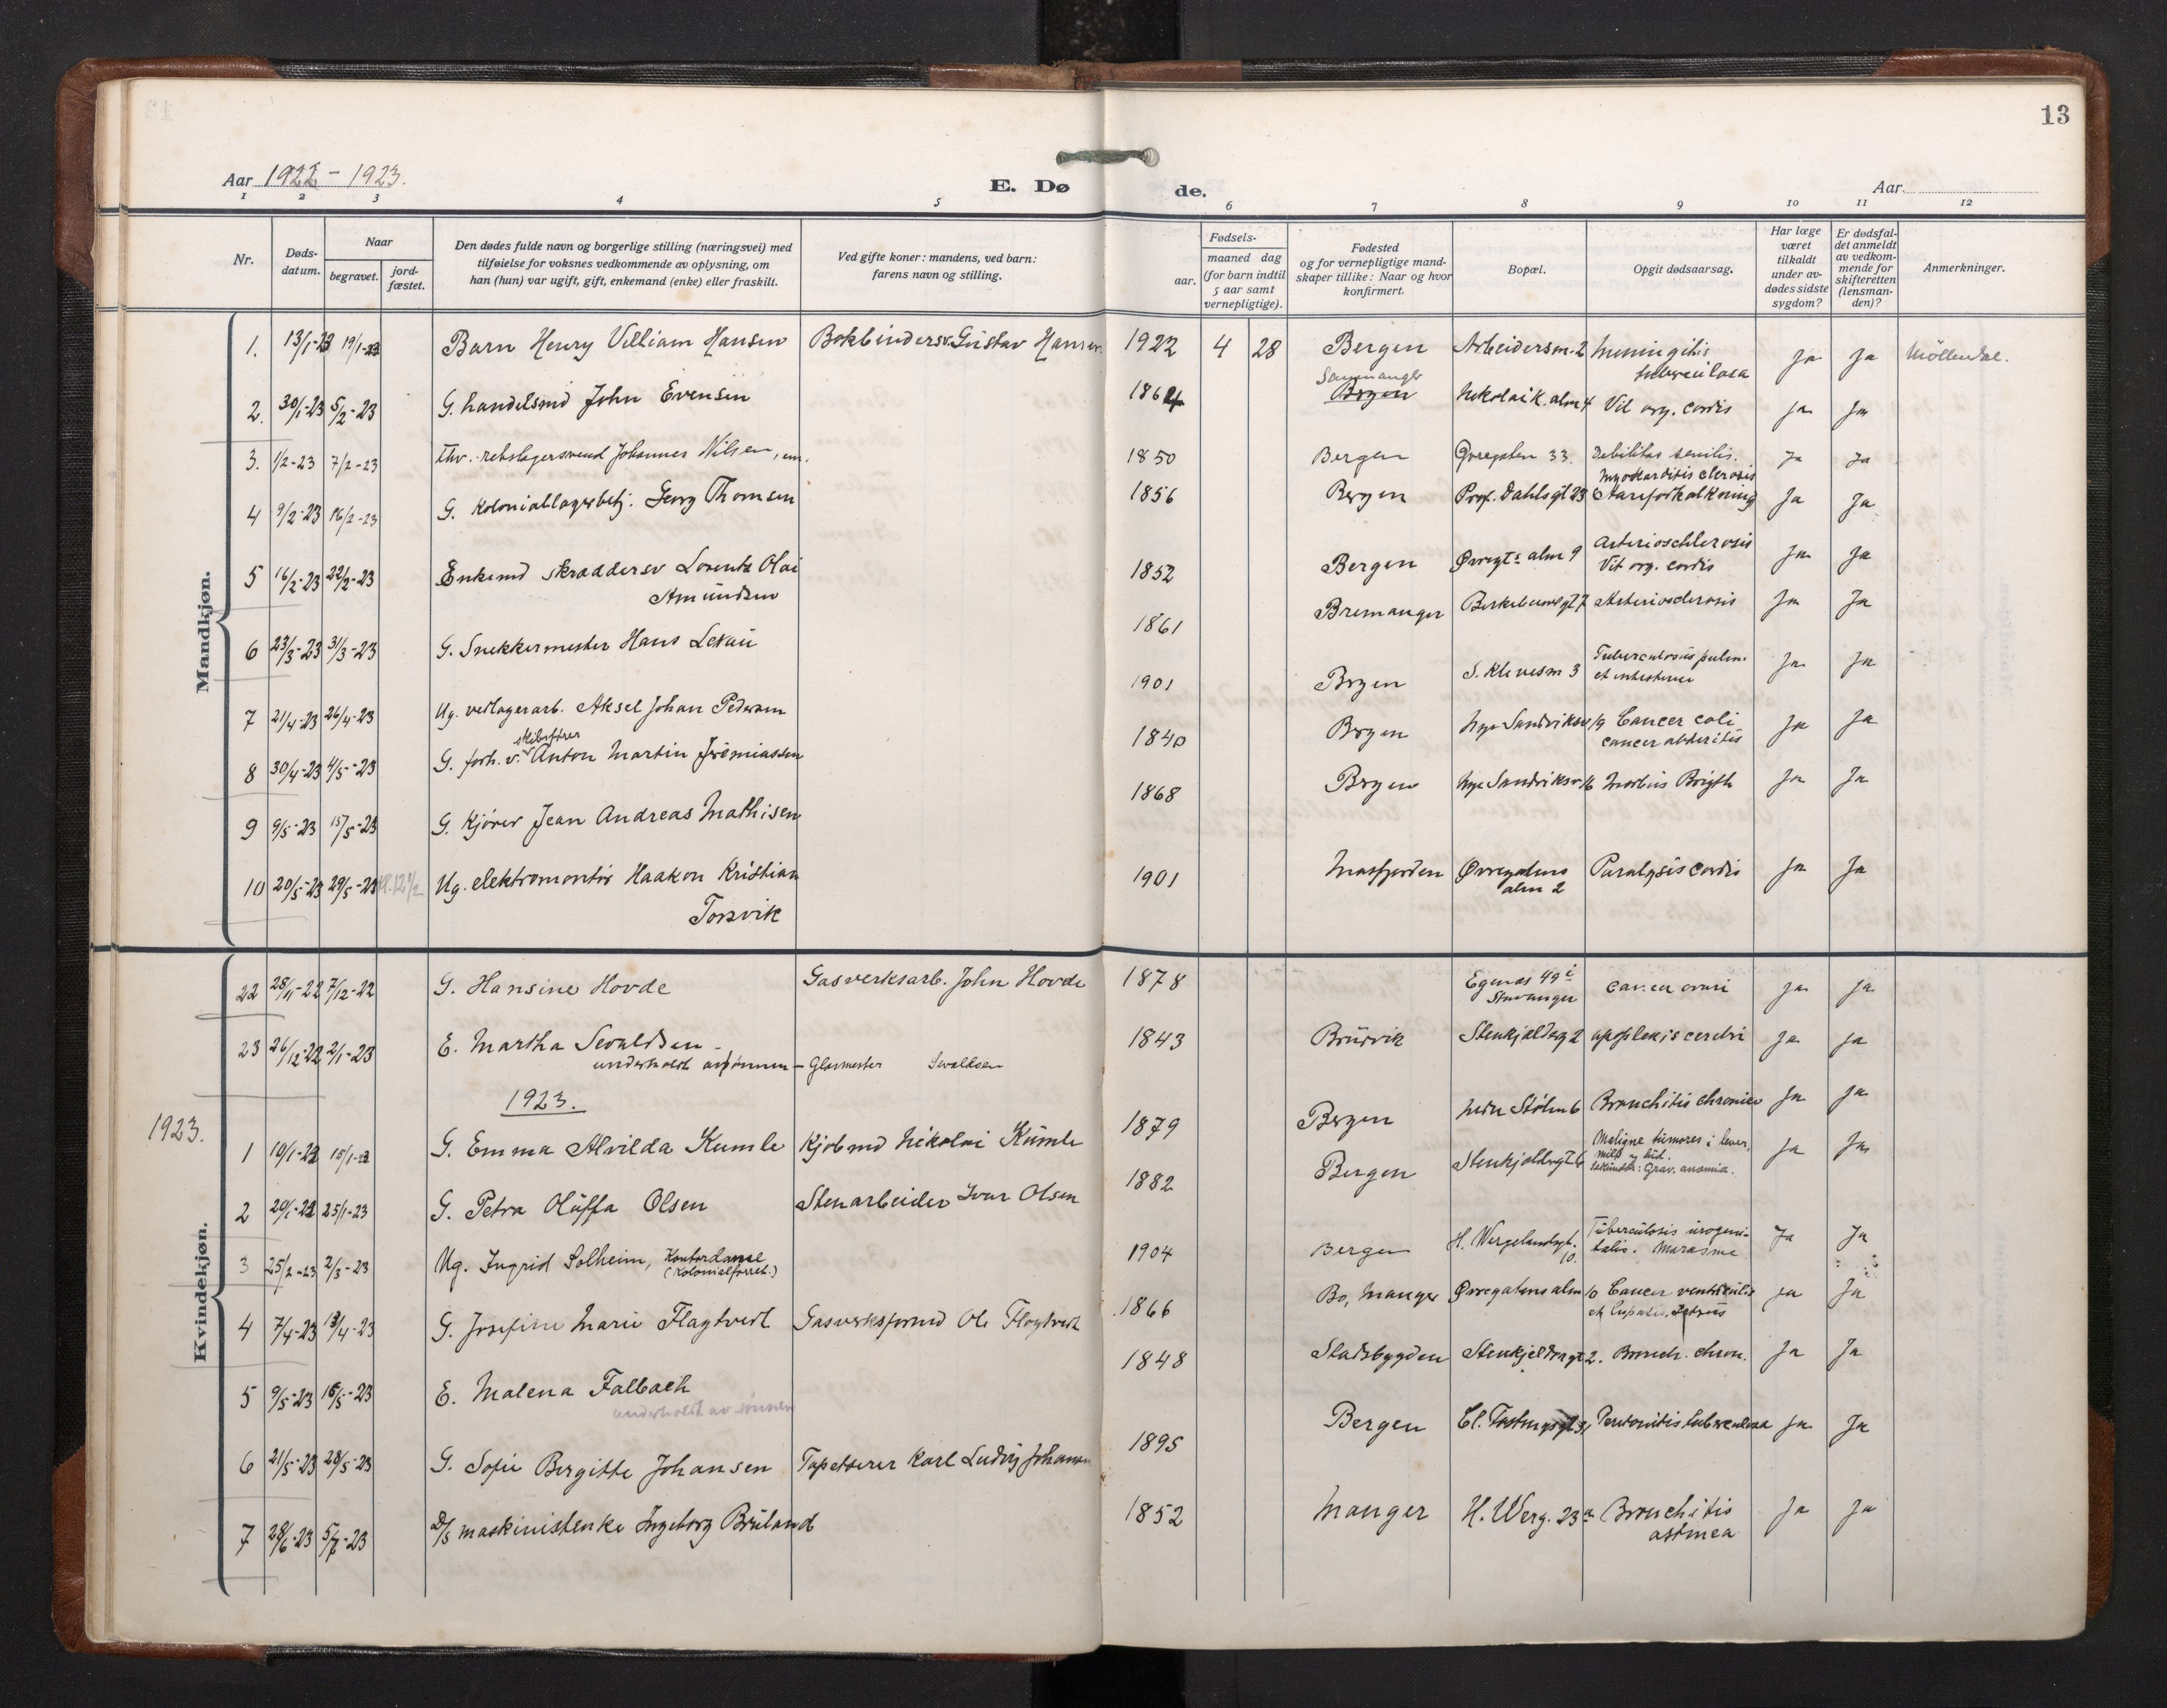 13
Aar 1922 - 1923.
E. Dø de.
Aar
1 2 3 4 5 6 7 8 9 10 11 12
Nr.
Døds-
datum.
Naar
begravet.
jord-
fæstet.
Den dødes fulde navn og borgerlige stilling (næringsvei) med
tilføielse for voksnes vedkommende av oplysning, om
han (hun) var ugift, gift, enkemand (enke) eller fraskilt.
Ved gifte koner: mandens, ved barn:
farens navn og stilling.
Fødsels-
aar.
maaned dag
(for barn indtil
5 aar samt
vernepligtige).
Fødested
og for vernepligtige mand-
skaper tillike: Naar og hvor
konfirmert.
Bopæl.
Opgit dødsaarsag.
Har læge
været
tilkaldt
under av-
dødes sidste
sygdom?
Er dødsfal-
det anmeldt
av vedkom-
mende for
skifteretten
(lensman-
den)?
Anmerkninger.
Mandkjøn.
1. 13/1-23 19/1-23 Barn Henry Villiam Hansen Bokbindersv. Gustav Hansen 1922 4 28 Bergen Arbeidersm. 2 Meningitis Ja Ja Møllendal.
tuberculosa
Samnanger
2. 30/1-23 5/2-23 G. handelsmd John Evensen 1864 Bergen Nikolaik. alm 4 Vit org. cordis Ja Ja
3. 1/2-23 7/2-23 fhv. rebslagersvend Johannes Nilsen, em. 1850 Bergen Øvregaten 33. Debilitas senilis. Ja Ja
4 9/2-23 16/2-23 G. Koloniallagerbetj. Georg Thomsen 1856 Bergen Prof. Dahlsgt 23 Aareforkalkning Ja Ja
5 16/2-23 22/2-23 Enkemd skræddersv Lorentz Olai 1852 Bergen Øvregts alm 9 Arterioschlerosis Ja Ja
Amundsen Vit org. cordis
6 23/3-23 31/3-23 G. Snekkermester Hans Lexau 1861 Bremanger Birkebeinergt 7 Arteriosclerosis Ja Ja
7 21/4-23 26/4-23 Ug. vedlagerarb. Aksel Johan Pedersen 1901 Bergen S. Klevesm 3 Tuberculosis pulm. Ja Ja
et intestinee
skibsfører
8 30/4-23 4/5-23 G. forh. v. Anton Martin Jeremiassen 1840 Bergen Nye Sandviksv 19 Cancer coli Ja Ja
9 9/5-23 15/5-23 G. Kjører Jean Andreas Mathisen 1868 Bergen Nye Sandviksv. 16 Morbus Brigth Ja Ja
10 20/5-23 29/5-23 Kl. 12 1/2 Ug. elektromontør Haakon Kristian 1901 Masfjorden Øvregatens Paralysis cordis Ja Ja
Torsvik alm 2
Kvindekjøn.
22 28/11-22 7/12-22 G. Hansine Hovde Gasverksarb. John Hovde 1878 Egenæs 49 i Cancer ovari Ja Ja
Stavanger
23 26/12-22 2/1-23 E. Martha Sevaldsen - 1843 Bruvik Stenkjelderg 2 apoplexis cerebri Ja Ja
underholdt av sønnen - Glasmester Sevaldsen
1923.
1923.
1 10/1-23 15/1-23 G. Emma Alvilda Kumle Kjøbmd Nikolai Kumle 1879 Bergen Nedre Stølen 6 Bronchitis chronica Ja Ja
2 20/1-23 25/1-23 G. Petra Oluffa Olsen Stenarbeider Ivar Olsen 1882 Bergen Stenkjeldergt 6 Maligne tumores i lever, Ja Ja
milt og hud.
Grav. anæmia.
3 25/2-23 2/3-23 Ug. Ingrid Solheim, Kontordame 1904 Bergen H. Wergelandsgt. 10. Tuberculosis urogeni- Ja Ja
(Kolonialforret.) talis. Marasme
4 7/4-23 13/4-23 G. Josefine Marie Flagtvedt Gasverksformd Ole Flagtvedt 1866 Bo, Manger Øvregatens alm 10 Cancer ventriculis Ja Ja
et hepatis. Icterus
5 9/5-23 16/5-23 E. Malena Falbach 1848 Stadsbygden Stenkjeldergt 2. Bronch. chron. Ja Ja
underholdt av sønnen
6 21/5-23 28/5-23 G. Sofie Birgitte Johansen Tapetserer Karl Ludvig Johansen 1895 Bergen Peritonitis tuberculosa Ja Ja
7 28/6-23 5/7-23 D/S maskinistenke Ingeborg Brüland 1852 Manger H. Werg. 23a Bronchitis Ja Ja
astmea